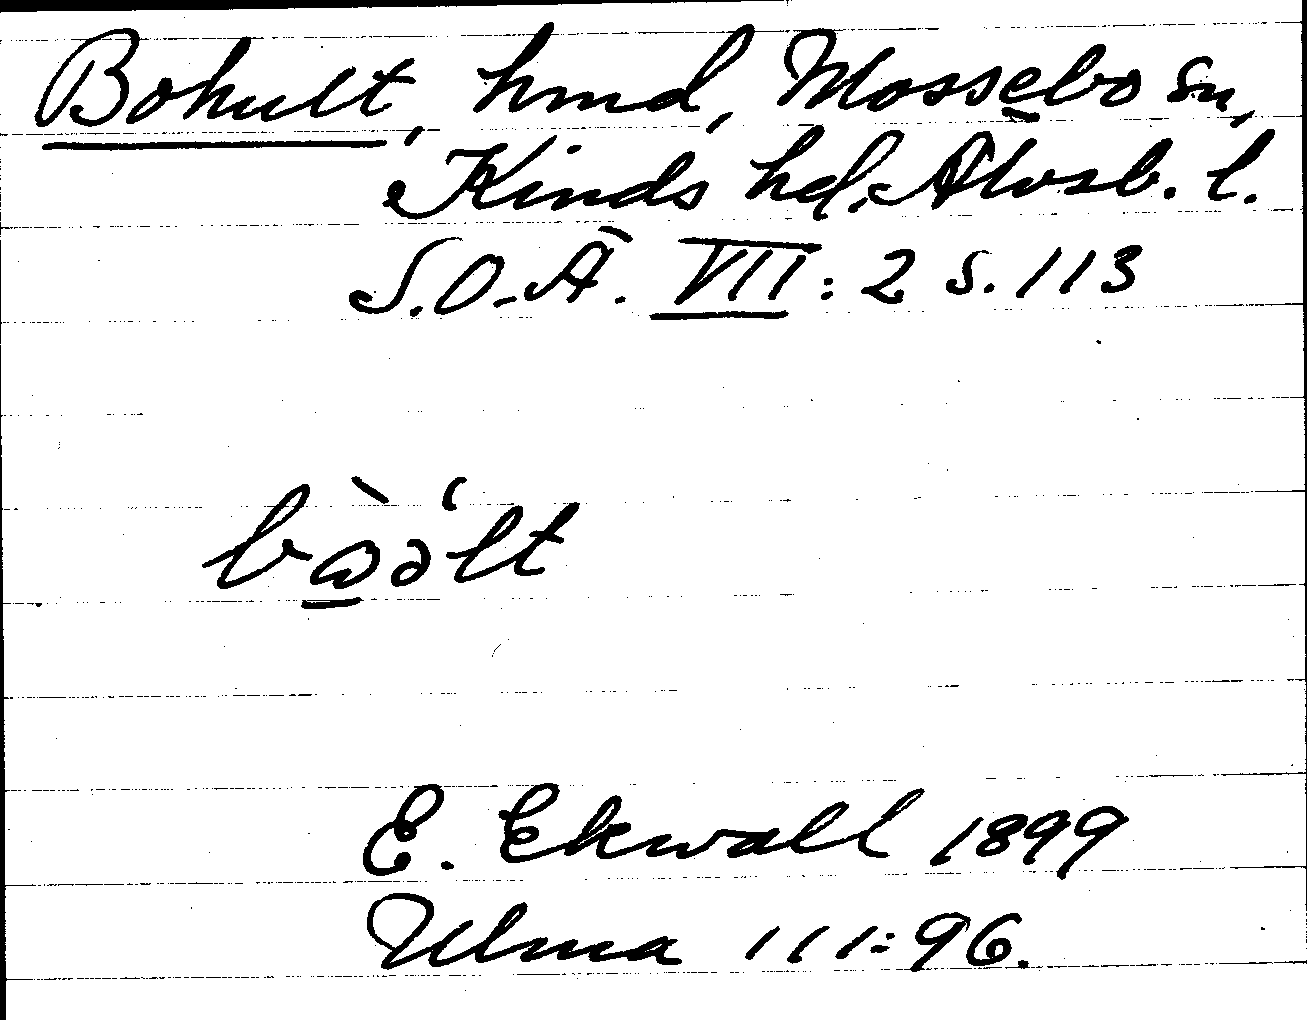 Bohult, hmd, Mossebo sn,
Kinds hd. Älvsb. l.
S.O.Ä. VII: 2 s. 113
E. Ekwall 1899
Ulma 111:96.